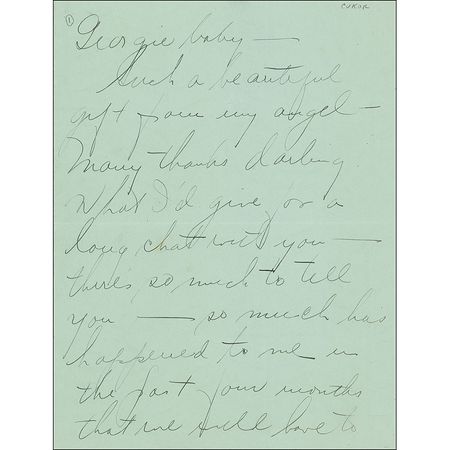 ① CUKOR
Georgie baby —
Such a beautiful
gift from my angel —
Many thanks darling
What I'd give for a
long chat with you —
there's so much to tell
you — so much has
happened to me in
the past four months
that we will have to